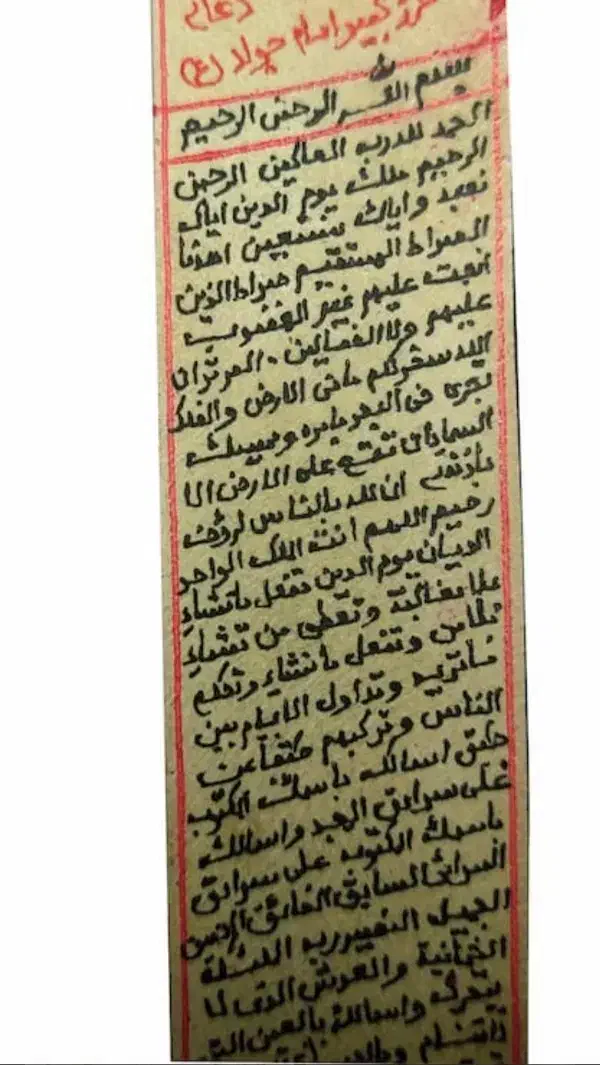 دعای
حرز کبیر امام جواد (ع)
بسم الله الرحمن الرحیم
الحمد لله رب العالمین الرحمن
الرحیم ملک یوم الدین ایاک
نعبد و ایاک نستعین اهدنا
الصراط المستقیم صراط الذین
انعمت علیهم غیر المغضوب
علیهم ولا الضالین. الم تر ان
الله سخر لکم ما فی الارض والفلک
تجری فی البحر بامره و یمسک
السماء ان تقع علی الارض الا
باذنه ان الله بالناس لرؤف
رحیم اللهم انت الملک الواحد
الدیان یوم الدین تفعل ما تشاء
بلا مغالبة و تعطی من تشاء
بلا من و تفعل ما تشاء و تحکم
ما ترید و تداول الایام بین
الناس و ترکبهم طبقا عن
طبق اسالک باسمک المکتوب
علی سرادق المجد و اسالک
باسمک المکتوب علی سرادق
السرائر السابق الفائق الحسن
الجمیل النضیر رب الملئکة
الثمانیة والعرش الذی لا
یتحرک و اسالک بالعین التی
لا تنام